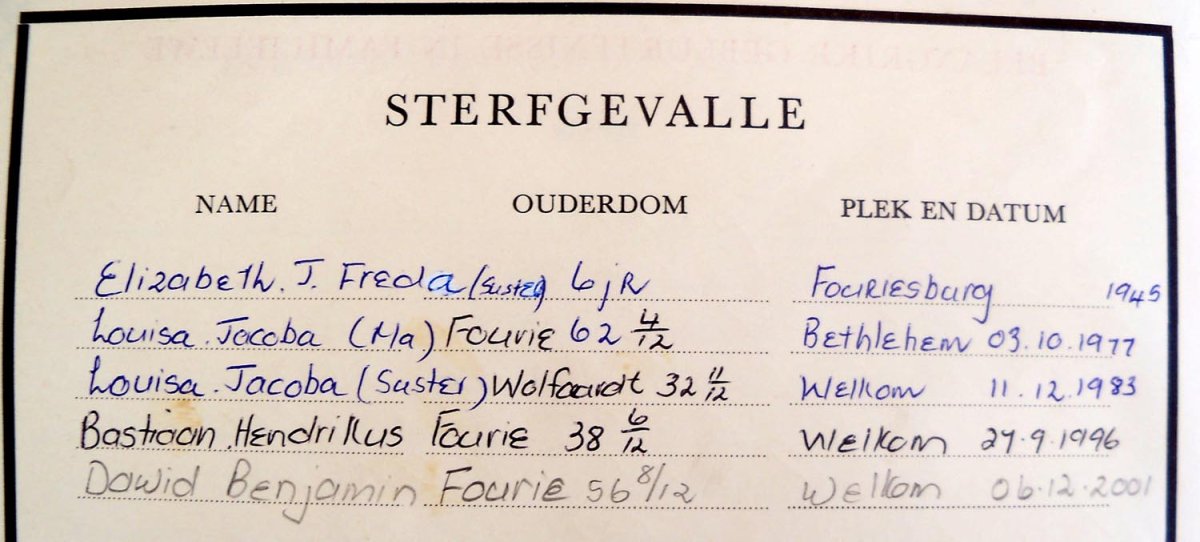 STERFGEVALLE
NAME OUDERDOM PLEK EN DATUM
Elizabeth. J. Freda (Suster) 6 jR Fouriesburg 1945
Louisa. Jacoba (Ma) Fourie 62 4/12 Bethlehem 03.10.1977
Louisa. Jacoba (Suster) Wolfaardt 32 11/12 Welkom 11.12.1983
Bastiaan. Hendrikus Fourie 38 6/12 Welkom 27.9.1996
Dawid Benjamin Fourie 56 8/12 Welkom 06.12.2001